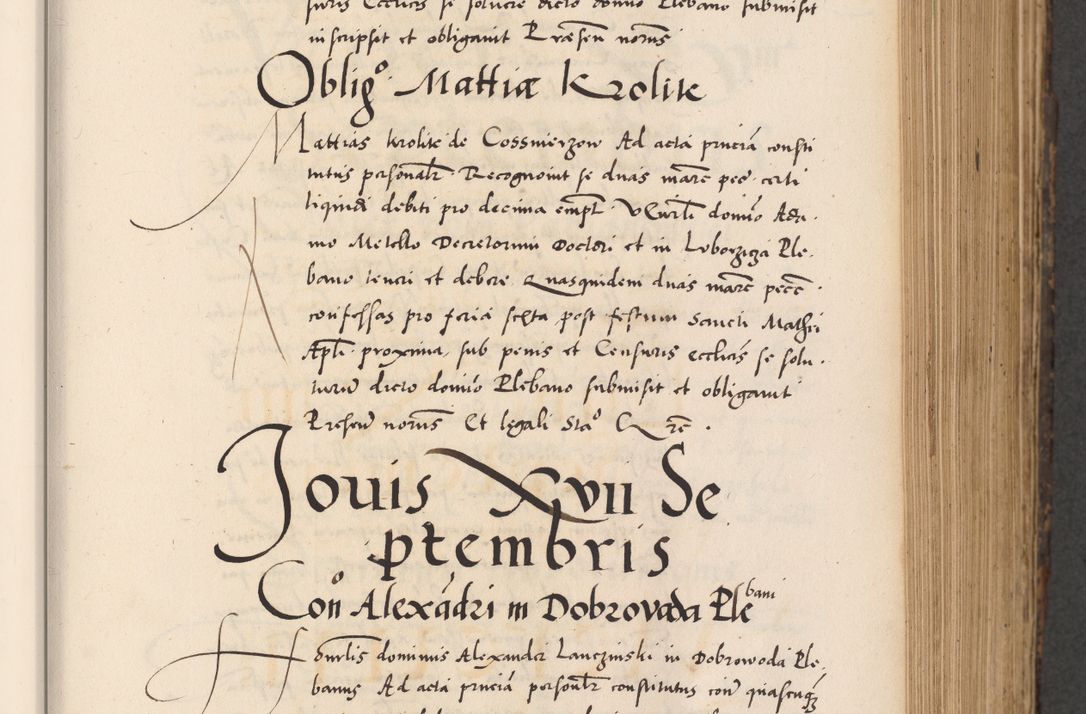 juris Ecclicis se soluere dicto domino Plebano submisit
inscripsit et obligauit Præsen norus
Oblig⁰ Mattiæ Krolik
Mattias Krolik de Cossmierzow Ad acta pnciā consti
tutus personalr Recognouit se duas marc pec certi
liquidi debiti pro decima empt Vūrli domino Ada
mo Metello Decretorum Doctori et in Loborzicza Ple
bano teneri et debere Quasquidem duas marc pecc
confessas pro feria sexta post festum Sancti Mathei
Apli proxima, sub penis et Censuris ecclicis se solu
turum dicto domino Plebano submisit et obligauit
Presen norus Et legali Sta⁰
Jouis Xvii Se
ptembris
Con Alexādri in Dobrovada Plebani
Honrlis dominus Alexander Lanczinski in Dobrowoda Ple
banus Ad acta pnciā personalr constitutus contr quascunq